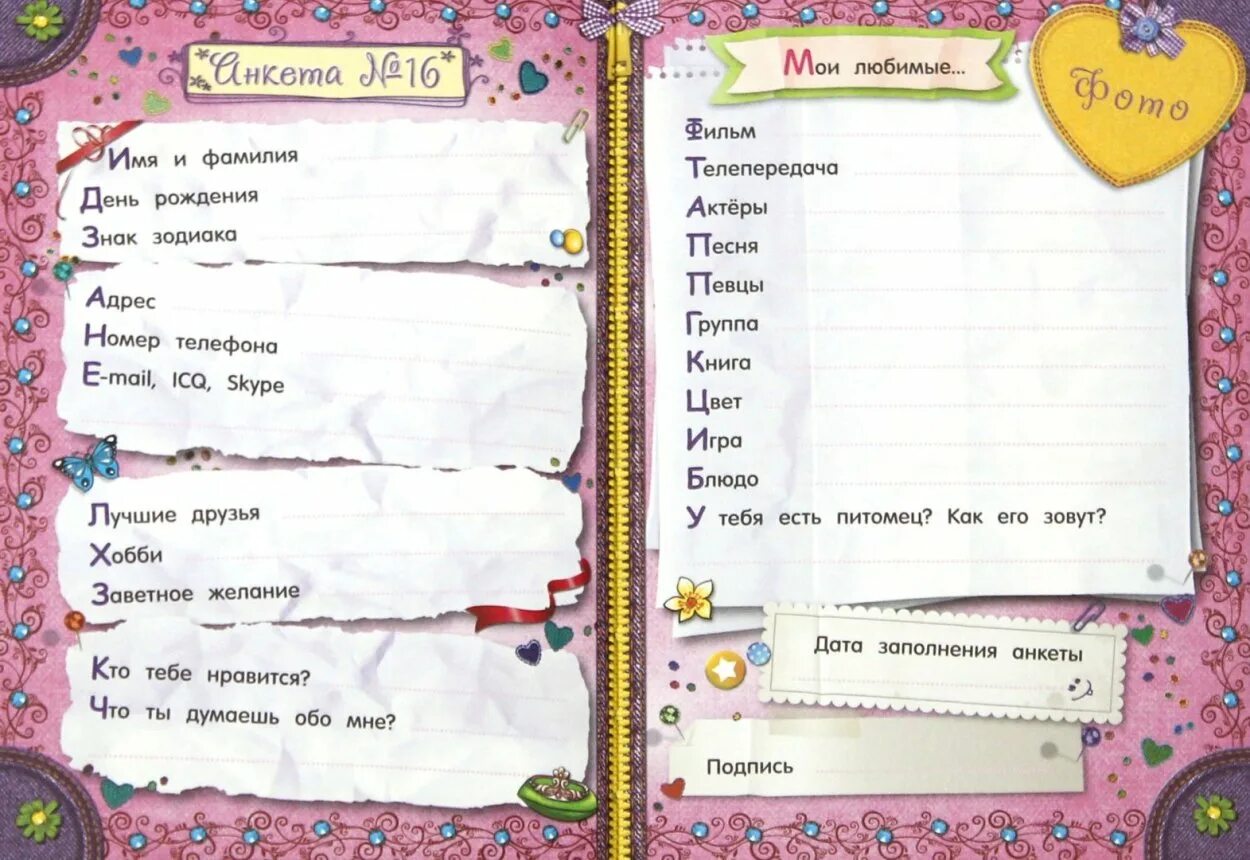 Анкета №16
Имя и фамилия
День рождения
Знак зодиака
Адрес
Номер телефона
E-mail, ICQ, Skype
Лучшие друзья
Хобби
Заветное желание
Кто тебе нравится?
Что ты думаешь обо мне?
Мои любимые...
Фото
Фильм
Телепередача
Актёры
Песня
Певцы
Группа
Книга
Цвет
Игра
Блюдо
У тебя есть питомец? Как его зовут?
Дата заполнения анкеты
Подпись